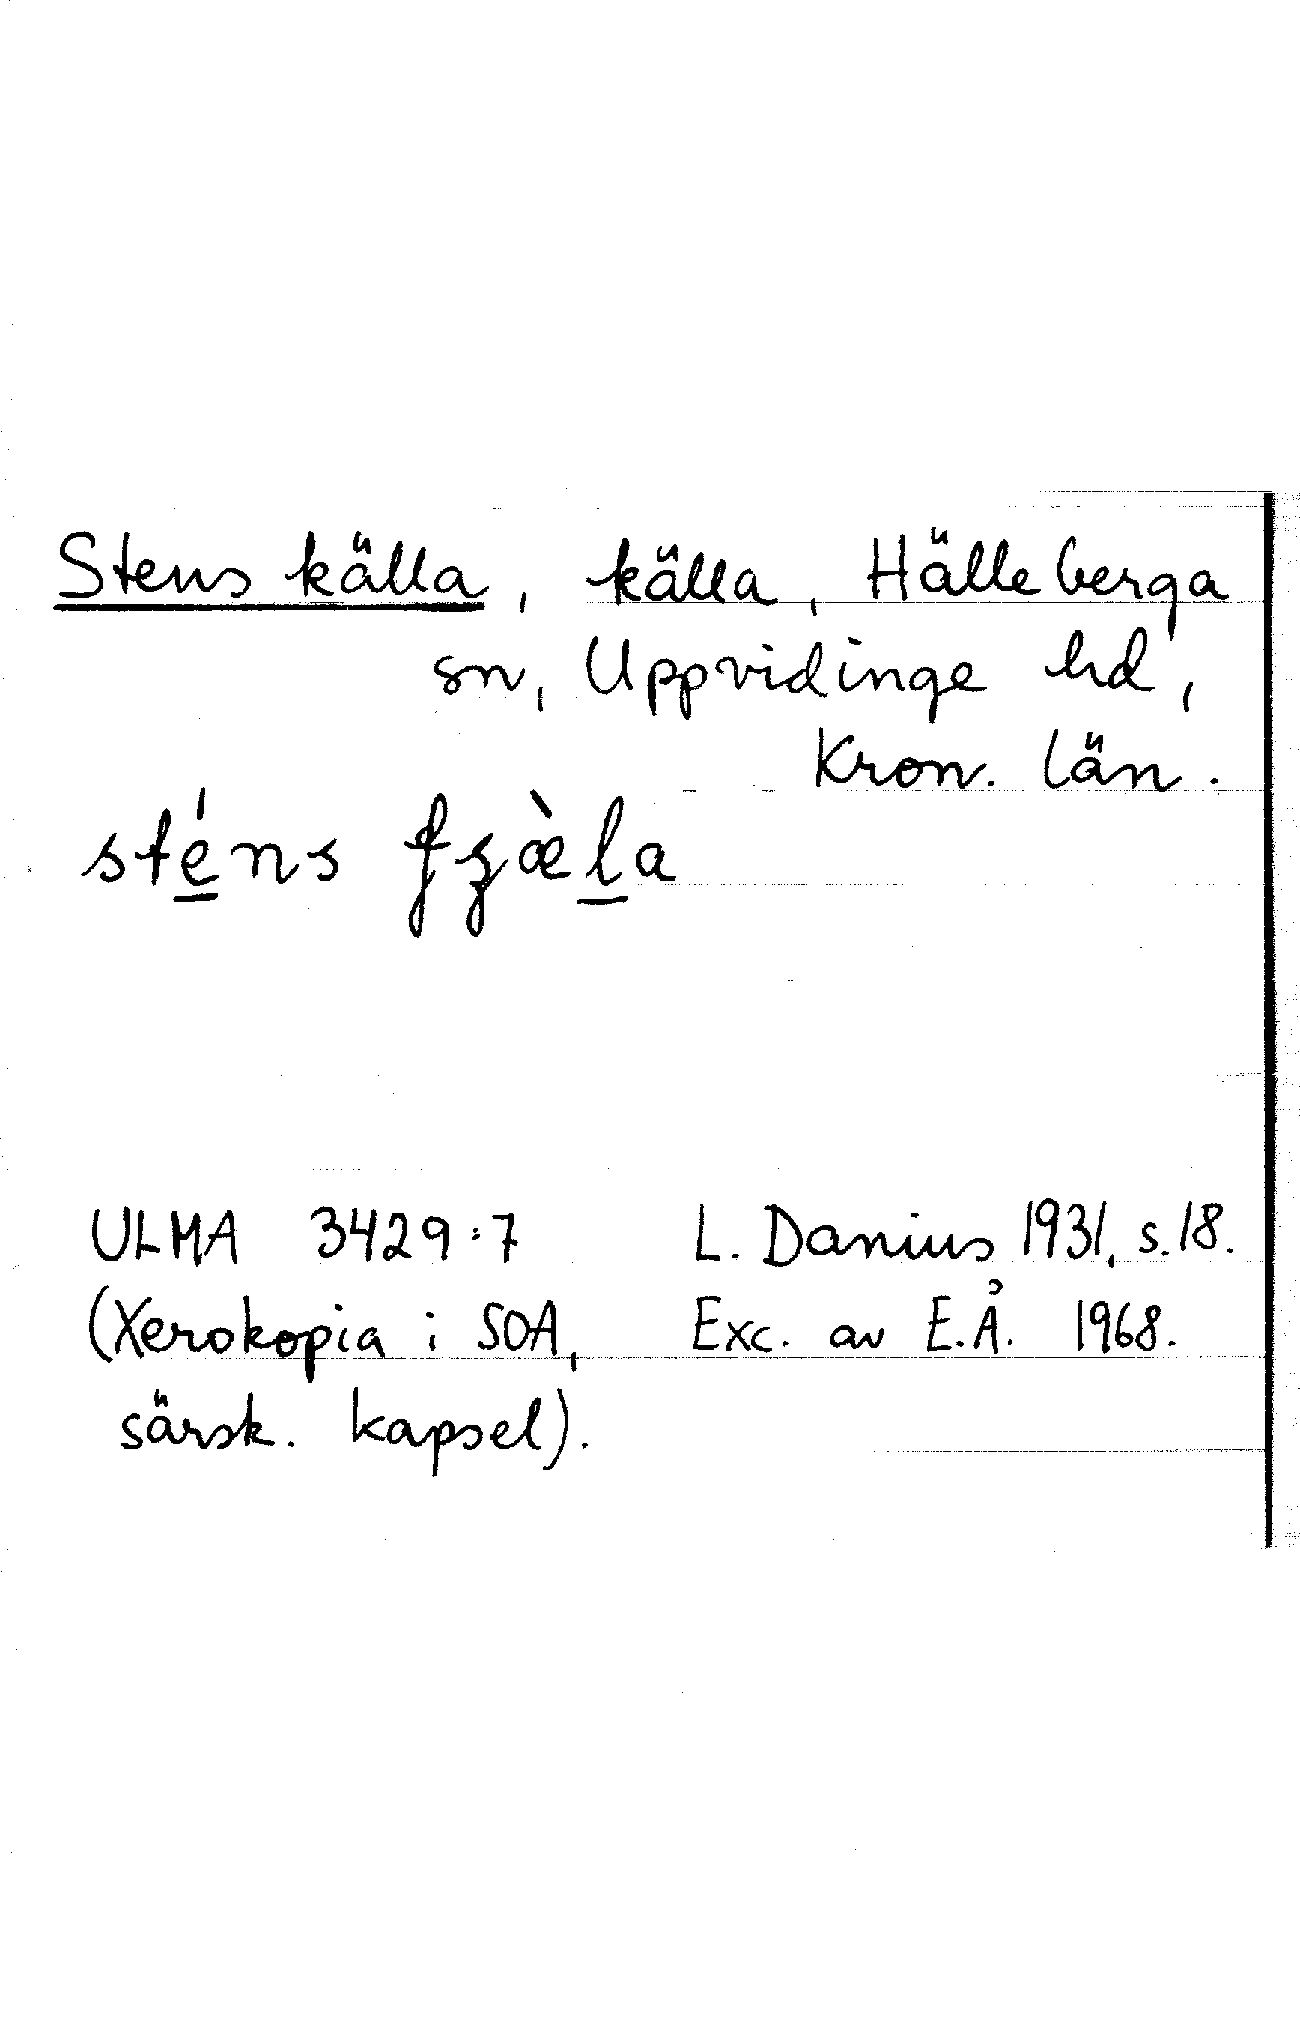 Stens källa, källa, Hälleberga
sn, Uppvidinge hd,
Kron. län.
sténs
ULMA 3429:7 L. Danius 1931, s. 18.
(Xerokopia i SOA, Exc. av E.Å. 1968.
särsk. kapsel).